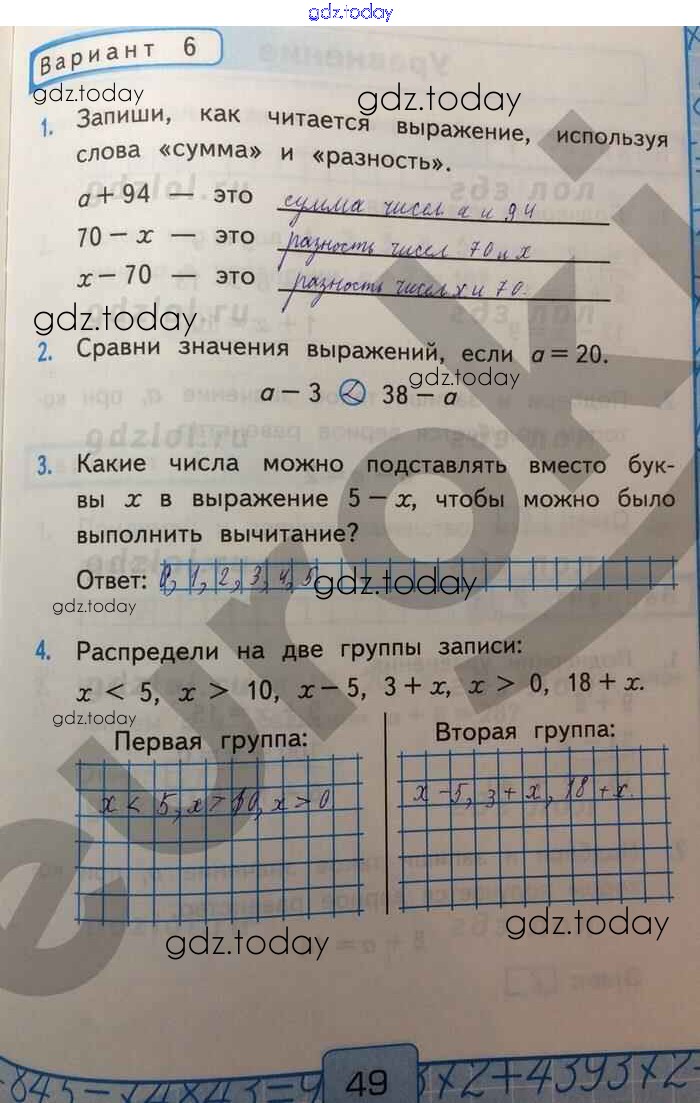 gdz.today
Вариант 6
gdz.today
gdz.today
1. Запиши, как читается выражение, используя
слова «сумма» и «разность».
a + 94 — это сумма чисел a и 94
70 − x — это разность чисел 70 и x
x − 70 — это разность чисел x и 70.
gdz.today
2. Сравни значения выражений, если a = 20.
gdz.today
a − 3 < 38 − a
3. Какие числа можно подставлять вместо бук-
вы x в выражение 5 − x, чтобы можно было
выполнить вычитание?
Ответ: 0, 1, 2, 3, 4, 5
gdz.today
gdz.today
4. Распредели на две группы записи:
x < 5, x > 10, x − 5, 3 + x, x > 0, 18 + x.
gdz.today
Первая группа: Вторая группа:
x < 5, x > 10, x > 0 x − 5, 3 + x, 18 + x.
gdz.today
gdz.today
euroki
49